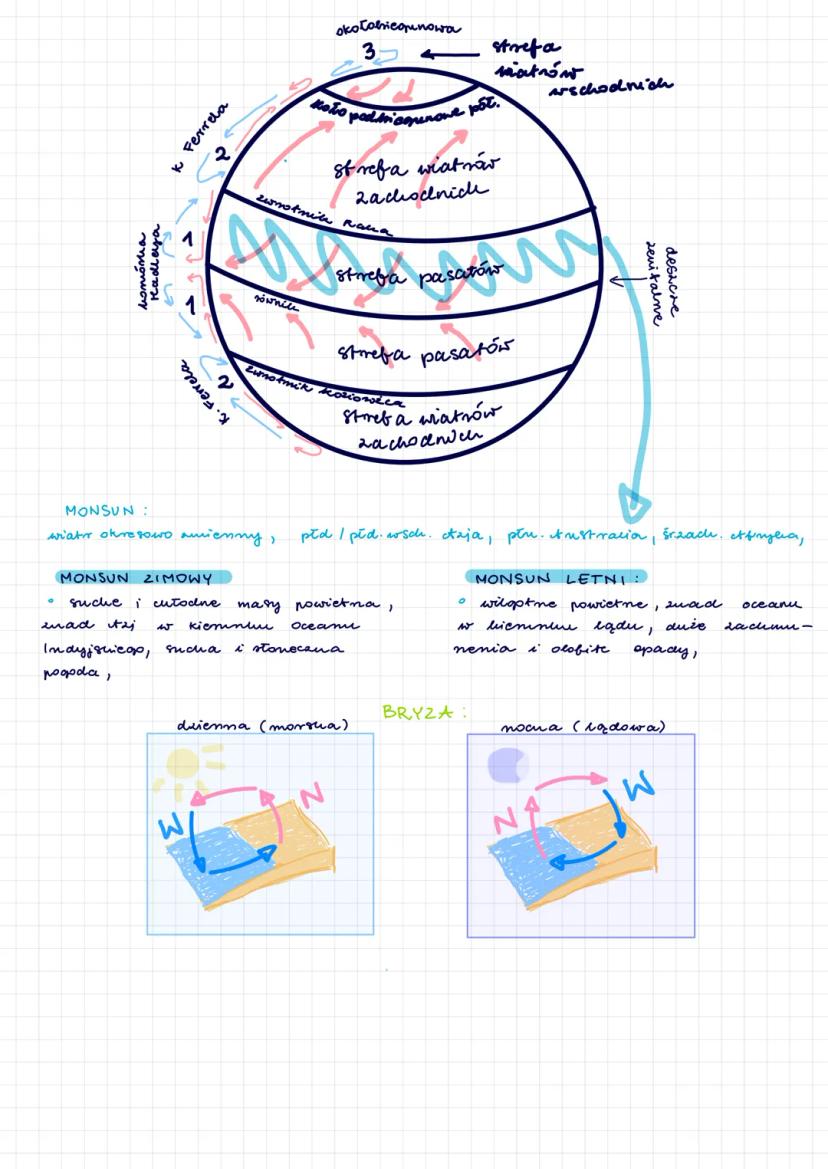 okołobiegunowa
3
strefa
wiatrów
wschodnich
koło podbiegunowe płn.
k Ferrela
2
strefa wiatrów
zachodnich
zwrotnik Raka
1
komórka
Hadleya
strefa pasatów
deszcze
zenitalne
równik
1
strefa pasatów
2
K. Ferrela
zwrotnik koziorożca
strefa wiatrów
zachodnich
MONSUN :
wiatr okresowo zmienny, płd / płd. wsch. Azja, płn. Australia, śr. zach. Afryka,
MONSUN ZIMOWY
• suche i chłodne masy powietrza,
znad Azj w kierunku Oceanu
Indyjskiego, sucha i słoneczna
pogoda,
MONSUN LETNI :
• wilgotne powietrze, znad oceanu
w kierunku lądu, duże zachmu-
rzenia i obfite opady,
BRYZA :
dzienna (morska)
W
N
nocna (lądowa)
N
W